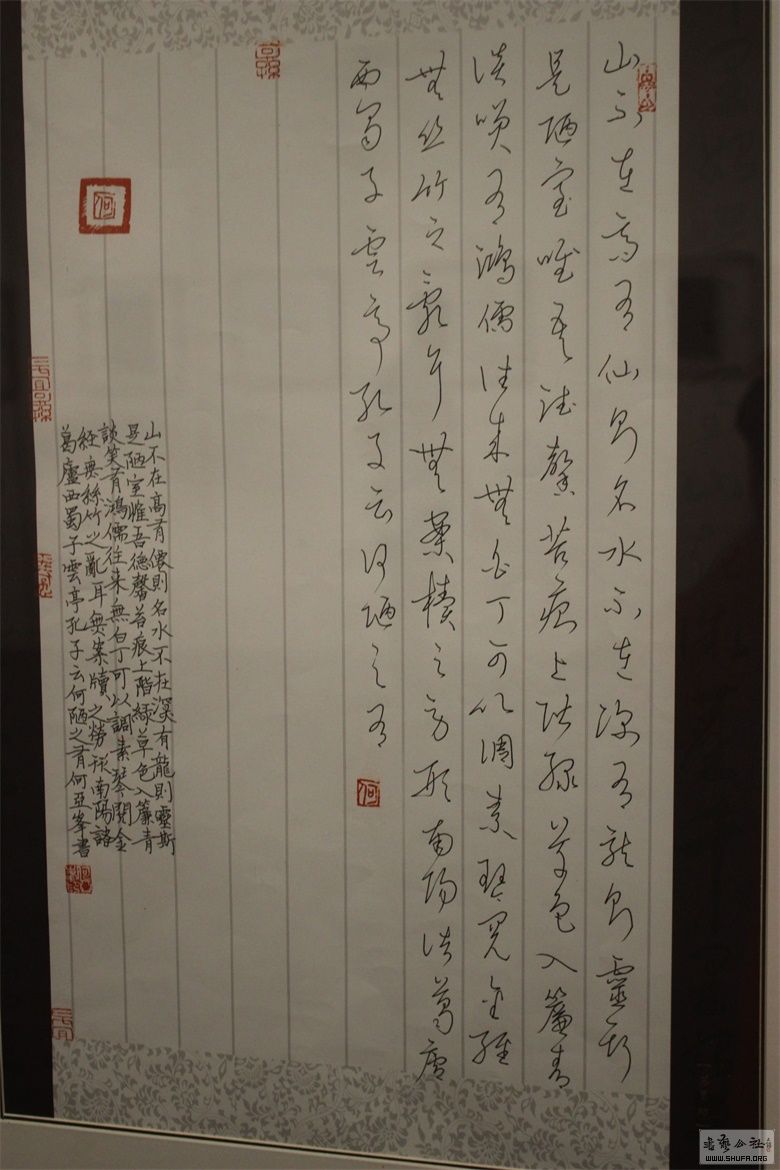 山不在高有仙則名水不在深有龍則靈斯
是陋室唯吾德馨苔痕上階綠草色入簾青
談笑有鴻儒往来無白丁可以調素琴閱金經
無丝竹之亂耳無案牘之勞形南陽諸葛廬
西蜀子雲亭孔子云何陋之有
何
何
山不在高有僊則名水不在深有龍則靈斯
是陋室惟吾德馨苔痕上階綠草色入簾青
談笑有鴻儒往来無白丁可以調素琴閱金
經無絲竹之亂耳無案牘之勞形南陽諸
葛廬西蜀子雲亭孔子云何陋之有何亞峯書
書藝公社
WWW.SHUFA.ORG